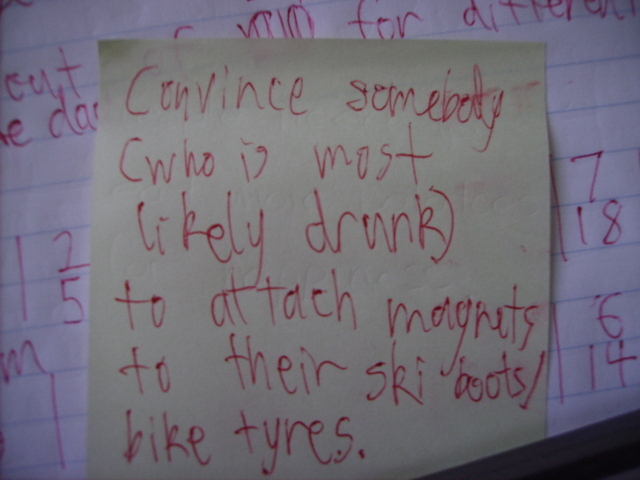 for different
cut
Convince somebody
(who is most
likely drunk)
to attach magnets
to their ski boots/
bike tyres.
7
18
1 2
5
6
14
m